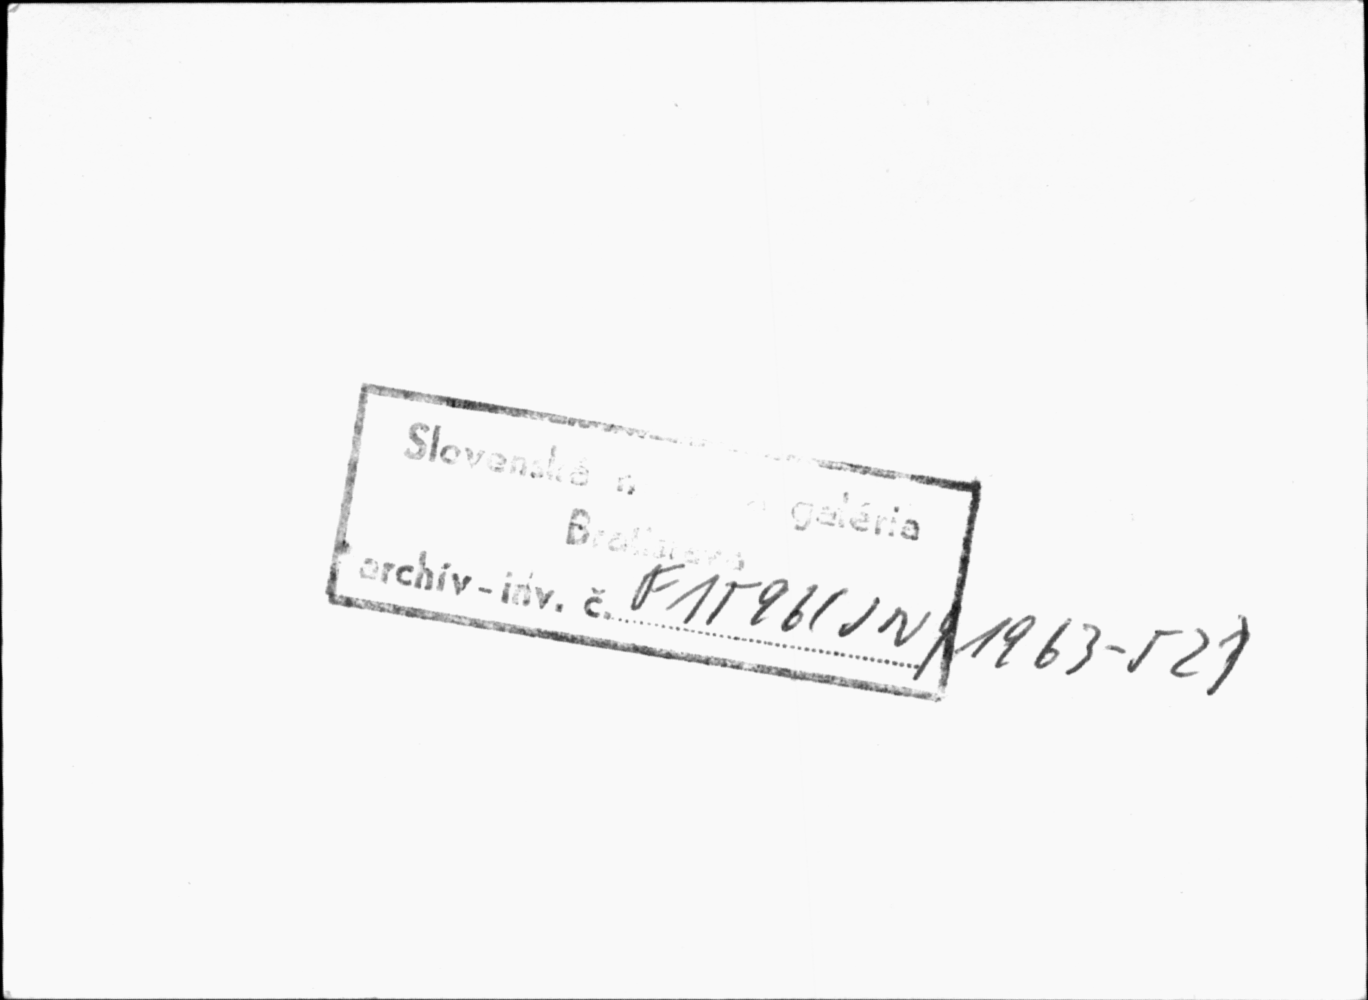 Slovenská n galéria
Bratislava
archív - inv. č. F 1596 (JN/1963-521)